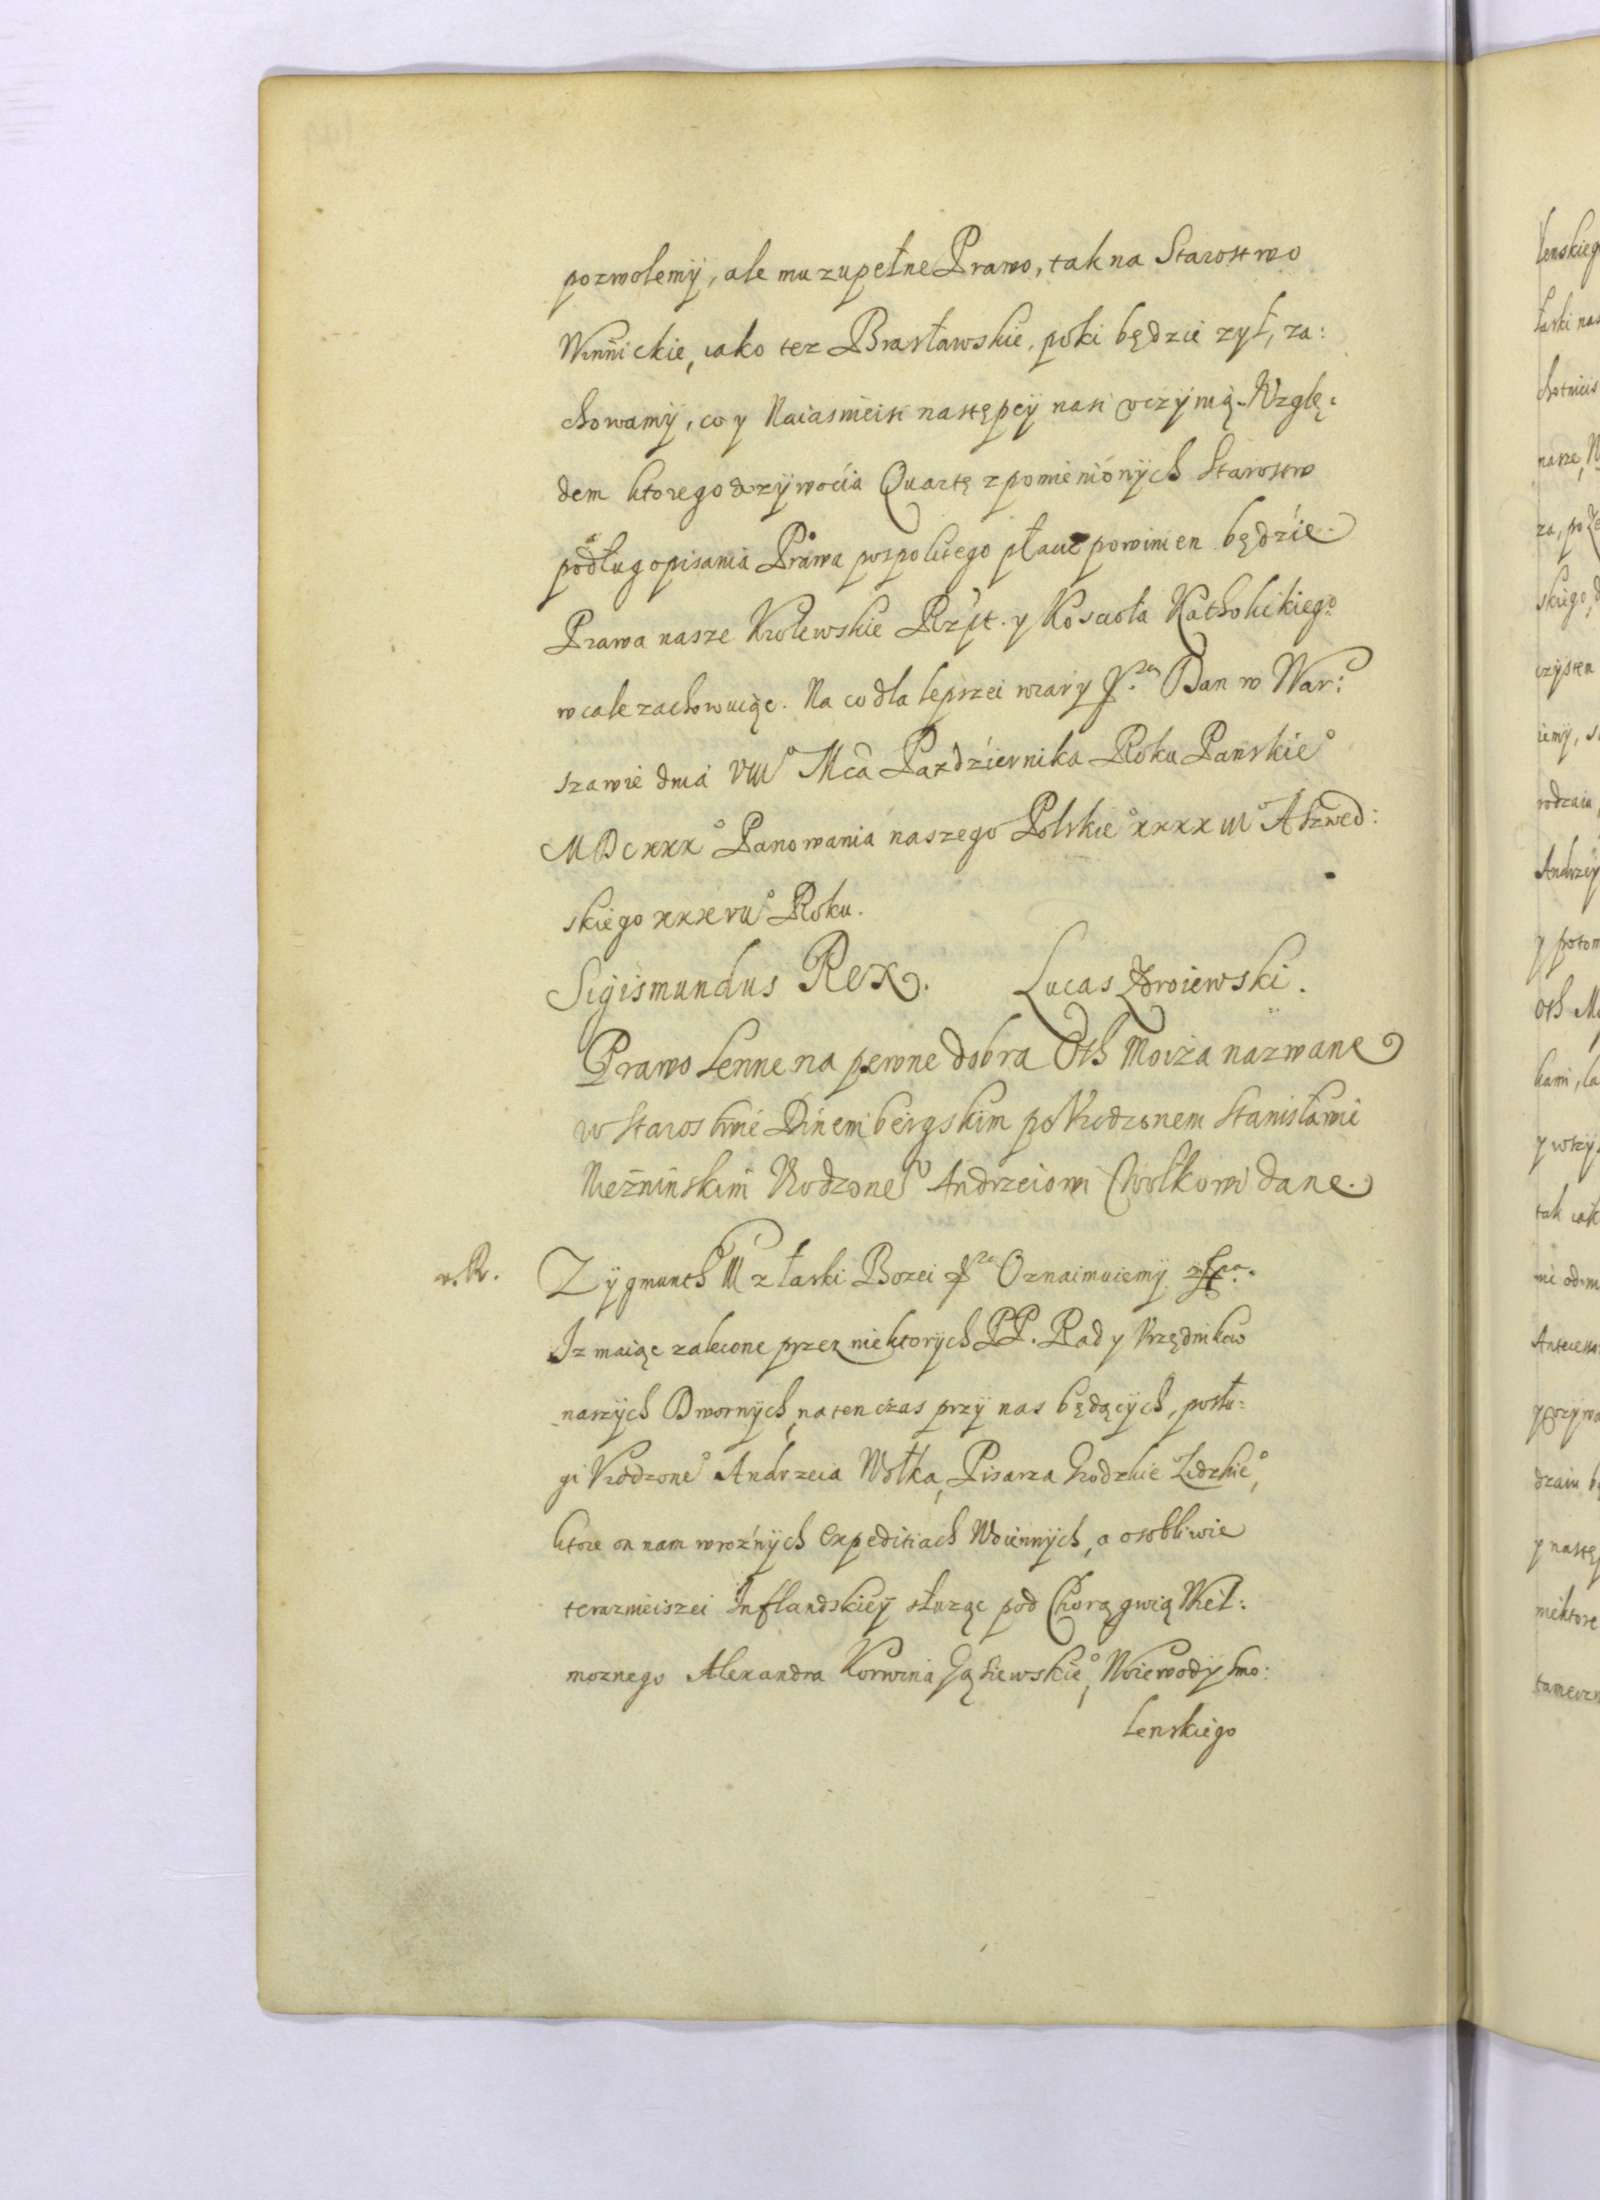 pozwolemy, ale mu zupełne Prawo, tak na Starostwo
Winnickie, iako tez Brasławskie, poki będzie zył, za:
chowamy, co y Naiasnieisi następcy nasi vczynią. Wzglę:
dem ktorego dozywocia Quartę z pomienionych Starostw
podług opisania Prawa pospolitego płacic powinien będzie
Prawa nasze Krolewskie Rzpt. y Koscioła Katholickiego
w cale zachowuiąc. Na co dla lepszei wiary Dan w War:
szawie dnia VIII Mca Pazdziernika Roku Panskie°
MDCxxx° Panowania naszego Polskie° xxxxiii° A Szwed:
skiego xxxvii° Roku.
Sigismundus Rex. Lucas Zdroiewski.
Prawo Lenne na pewne dobra Oth Moiza nazwane
w Starostwie Dinemberskim po Vrodzonem Stanisławie
Niezninskim Vrodzone° Andrzeiowi Wołkowi dane.
v. R. Zygmunth III z łaski Bozei Oznaimuiemy
Iz maiąc zalecone przez niektorych PP. Rad y Vrzędnikow
naszych Dwornych, na ten czas przy nas będących, posłu:
gi Vrodzone° Andrzeia Wołka, Pisarza Grodzkie Lidzkie°,
ktore on nam w roznych expeditiach Woiennych, a osobliwie
terazmieiszei Inflandskiey słuząc pod Chorągwią Wiel:
moznego Alexandra Korwina Gąsiewskie°, Woiewody Smo:
lenskiego